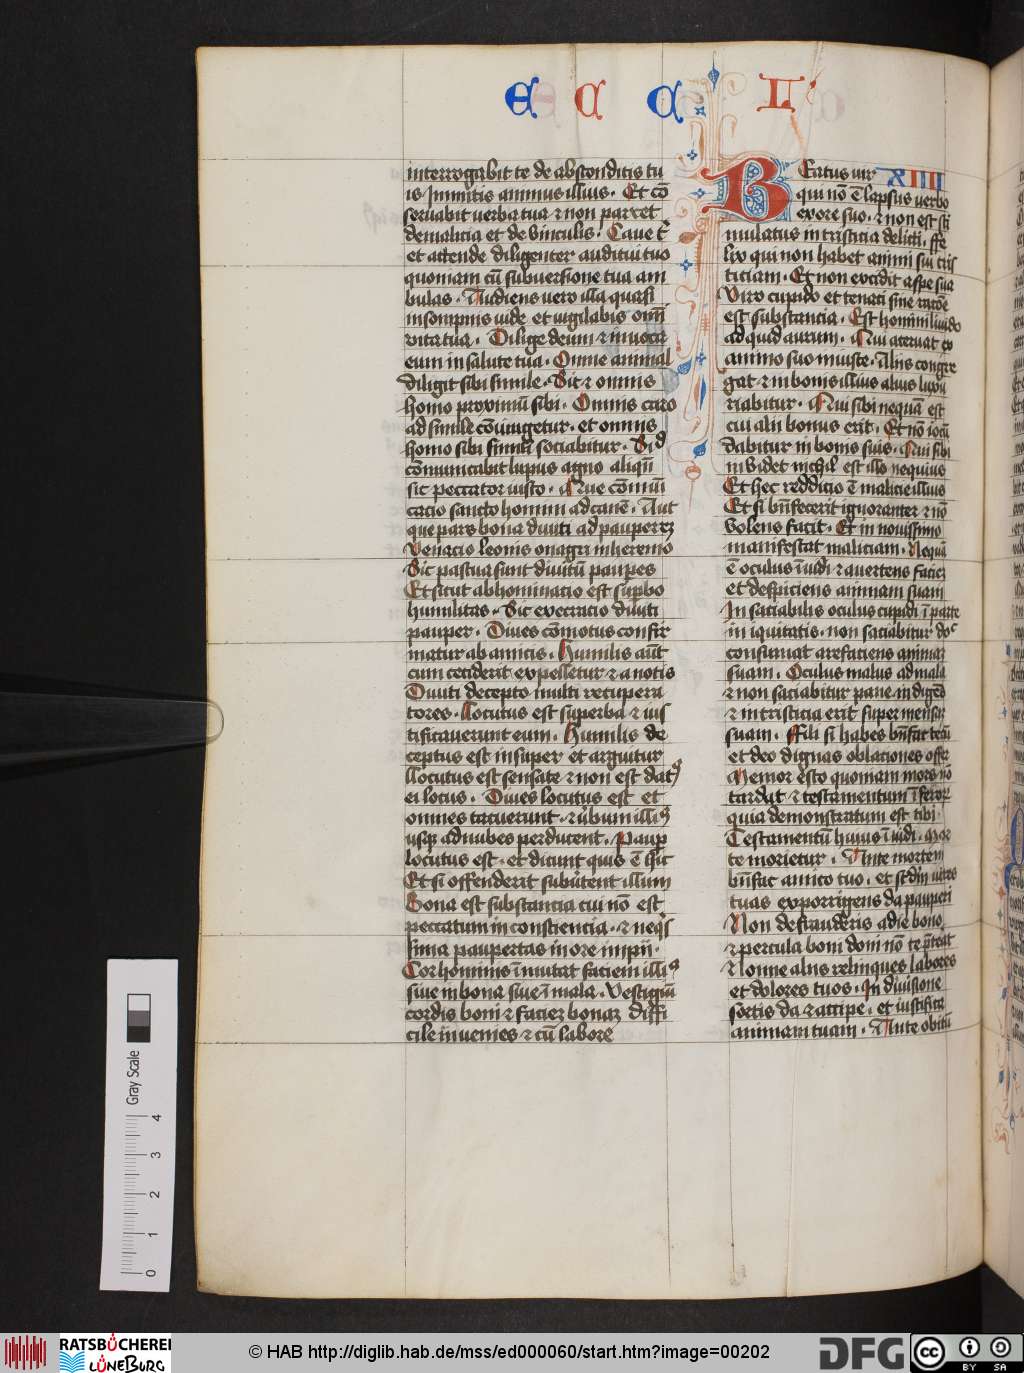 E C C L
interrogabit te de absconditis tu
is Inmitis animus illius. Et cō
seruabit uerba tua ⁊ non parcet
demalicia et de vinculis. Caue t̄
et attende diligenter auditui tuo
quoniam cū subuersione tua am
bulas. Audiens uero illa quasi
insompnis uide et vigilabis omī
vita tua. Dilige deum ⁊ inuoca
eum in salute tua. Omne animal
diligit sibi simile. Sic ⁊ omnis
homo proximū sibi. Omnis caro
ad simile cōiungetur. et omnis
homo sibi simili sociabitur. Si
cōmunicabit lupus agno aliqn̄
sic peccator iusto. Que cōmūi
cacio sancto homini ad canē. Aut
que pars bona diuiti ad pauperez
Venacio leonis onagri in heremo
Sic pastua sunt diuitū paupes
Et sicut abhominacio est supbo
humilitas. Sic execratio diuiti
pauper. Diues cōmotus confir
matur ab amicis. Humilis aūt
cum ceciderit expelletur ⁊ a notis
Diuiti decepto multi recupera
tores. Locutus est superba ⁊ ius
tificauerunt eum. Humilis de
ceptus est insuper et arguitur
Locutus est sensate ⁊ non est datꝰ
ei locus. Diues locutus est et
omnes tacuerunt. ⁊ ūbum illiꝰ
usqꝫ ad nubes perducent. Paup
locutus est. et dicunt quis ē hic
Et si offenderit subūtent illum
Bona est substancia cui nō est
peccatum in consciencia. ⁊ neqs
sima paupertas in ore impii.
Cor hominis īmutat faciem illiꝰ
siue in bona siue ī mala. Vestigiū
cordis boni ⁊ faciez bonaz diffi
cile inuenies ⁊ cū labore
XIIII
Beatus uir
qui nō ē lapsus uerbo
ex ore suo. ⁊ non est sti
mulatus in tristicia delicti. ffe
lix qui non habet animi sui tris
ticiam. Et non excidit a spe sua
Viro cupido et tenaci sine racōe
est substancia. Est homini liuido
ad quid aurum. Qui aceruat ex
animo suo iniuste. Aliis congre
gat ⁊ in bonis illius alius luxu
riabitur. Qui sibi nequā est
cui alii bonus erit. Et nō iocū
dabitur in bonis suis. Qui sibi
inuidet nichil est illo nequius
Et hec reddicio ē malicie illius
Et si bn̄fecerit ignoranter ⁊ nō
volens facit. Et in nouissimo
manifestat maliciam. Nequā
ē oculus īuidi ⁊ auertens faciez
et despiciens animam suam
In saciabilis oculus cupidi ī parte
in iquitatis. non saciabitur do
consumat arefaciens animaz
suam. Oculus malus ad mala
⁊ non saciabitur pane indigēs
⁊ in tristicia erit super mensaz
suam. ffili si habes bn̄fac tecū
et deo dignas oblationes offer
Memor esto quoniam mors nō
tardat ⁊ testamentum īferor
quia demonstratum est tibi.
Testamentū huius īuidi. Mor
te morietur. Ante mortem
bn̄fac amico tuo. et scdm vires
tuas exporrigens da pauperi
Non defrauderis a die bono.
⁊ percula boni doni nō te p̄teat
Nonne aliis relinques labores
et dolores tuos. In diuisione
sortis da ⁊ accipe. et iustifica
animam tuam. Ante obitū
Gray Scale
0 1 2 3 4
RATSBÜCHEREI
LÜNEBURG
© HAB http://diglib.hab.de/mss/ed000060/start.htm?image=00202
DFG
cc BY SA